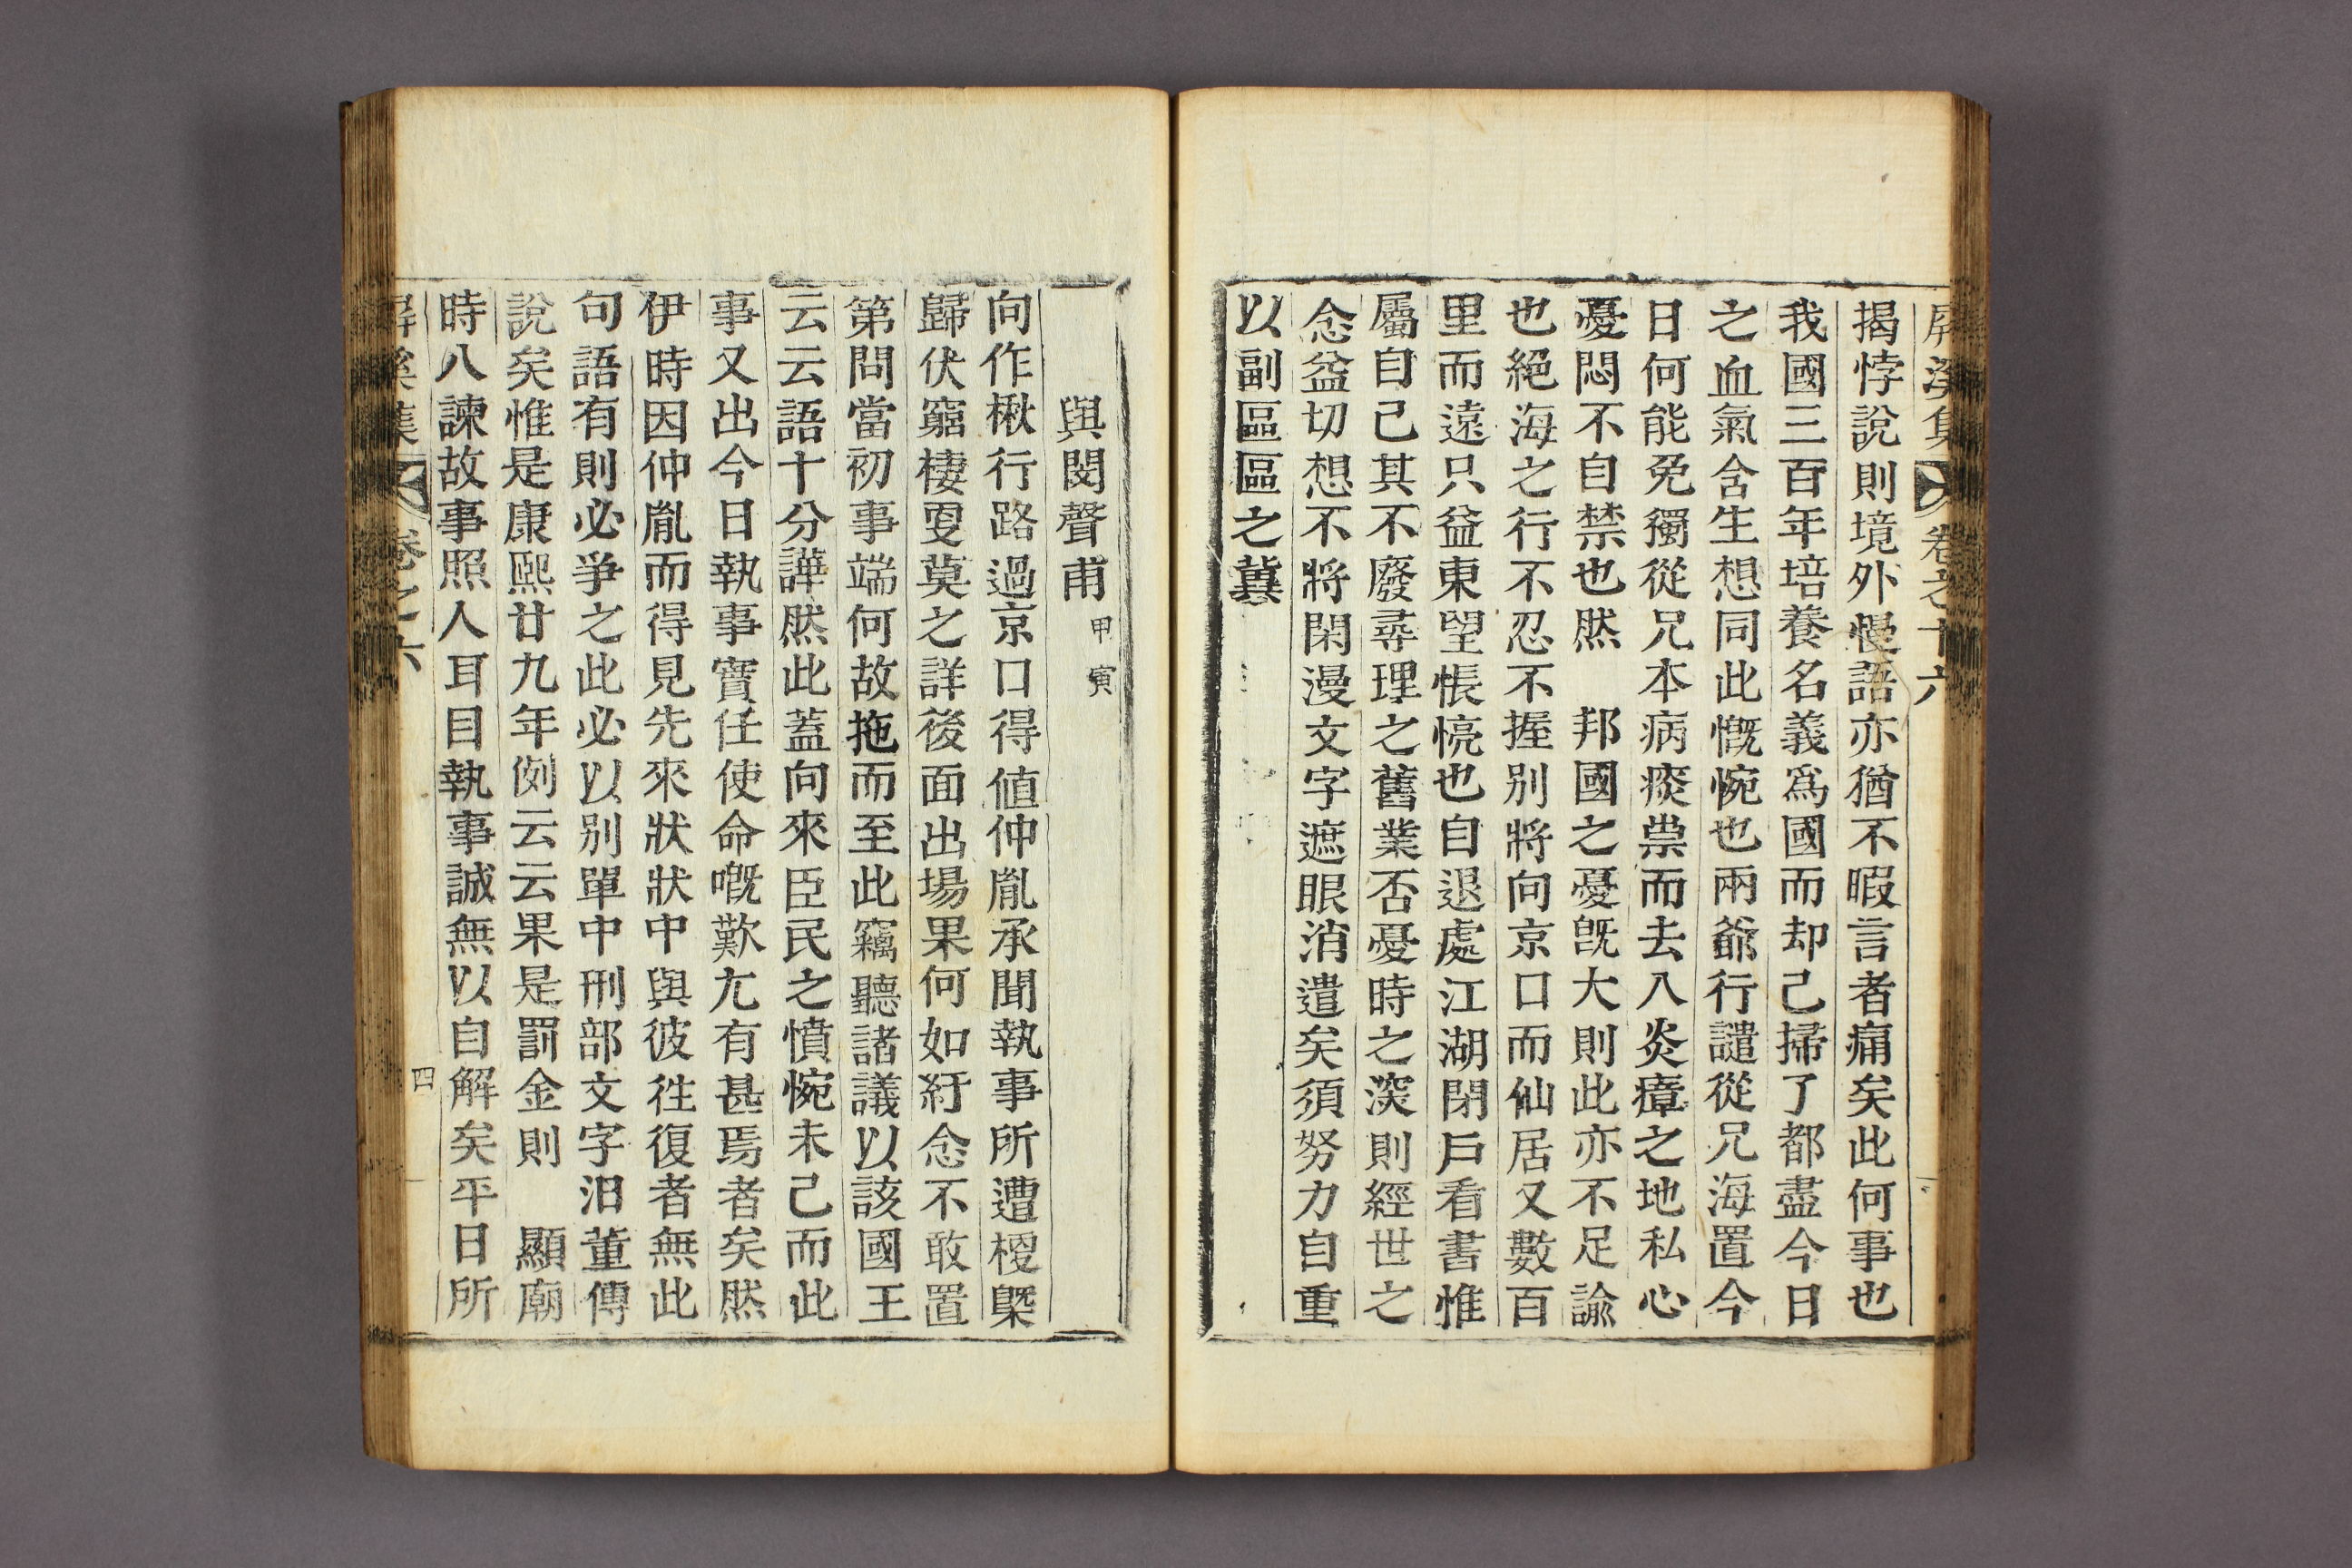 屛溪集 卷之十六
揭悖說則境外慢語亦猶不暇言者痛矣此何事也
我國三百年培養名義爲國而却己掃了都盡今日
之血氣含生想同此慨惋也兩爺行譴從兄海置今
日何能免獨從兄本病痰祟而去八炎瘴之地私心
憂悶不自禁也然 邦國之憂旣大則此亦不足諭
也絕海之行不忍不握别將向京口而仙居又數百
里而遠只益東望悵怳也自退處江湖閉戶看書惟
屬自己其不廢尋理之舊業否憂時之深則經世之
念益切想不將閑漫文字遮眼消遣矣須努力自重
以副區區之冀
與閔聲甫 甲寅
向作楸行路過京口得値仲胤承聞執事所遭梗槩
歸伏窮棲更莫之詳後面出場果何如紆念不敢置
第問當初事端何故拖而至此竊聽諸議以該國王
云云語十分譁然此蓋向來臣民之憤惋未己而此
事又出今日執事實任使命嘅歎尤有甚焉者矣然
伊時因仲胤而得見先來狀狀中與彼徃復者無此
句語有則必爭之此必以别單中刑部文字汨董傳
說矣惟是康熙廿九年例云云果是罰金則 顯廟
時八諫故事照人耳目執事誠無以自解矣平日所
屛溪集 卷之十六 四